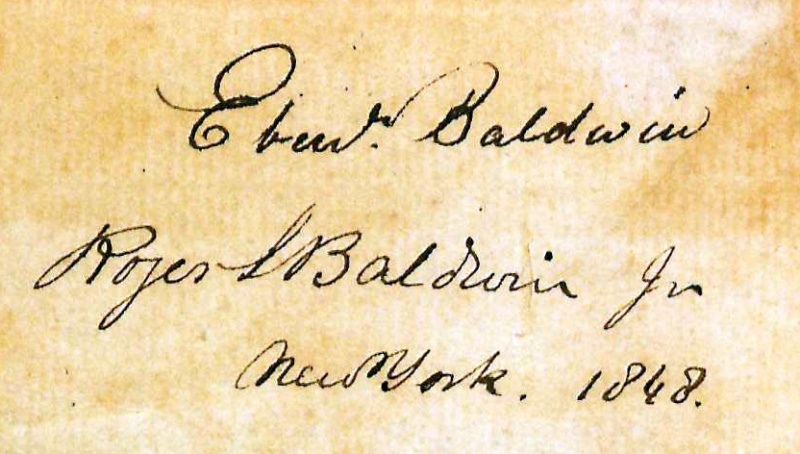 Ebenr. Baldwin
Roger S Baldwin Jr
New York. 1848.